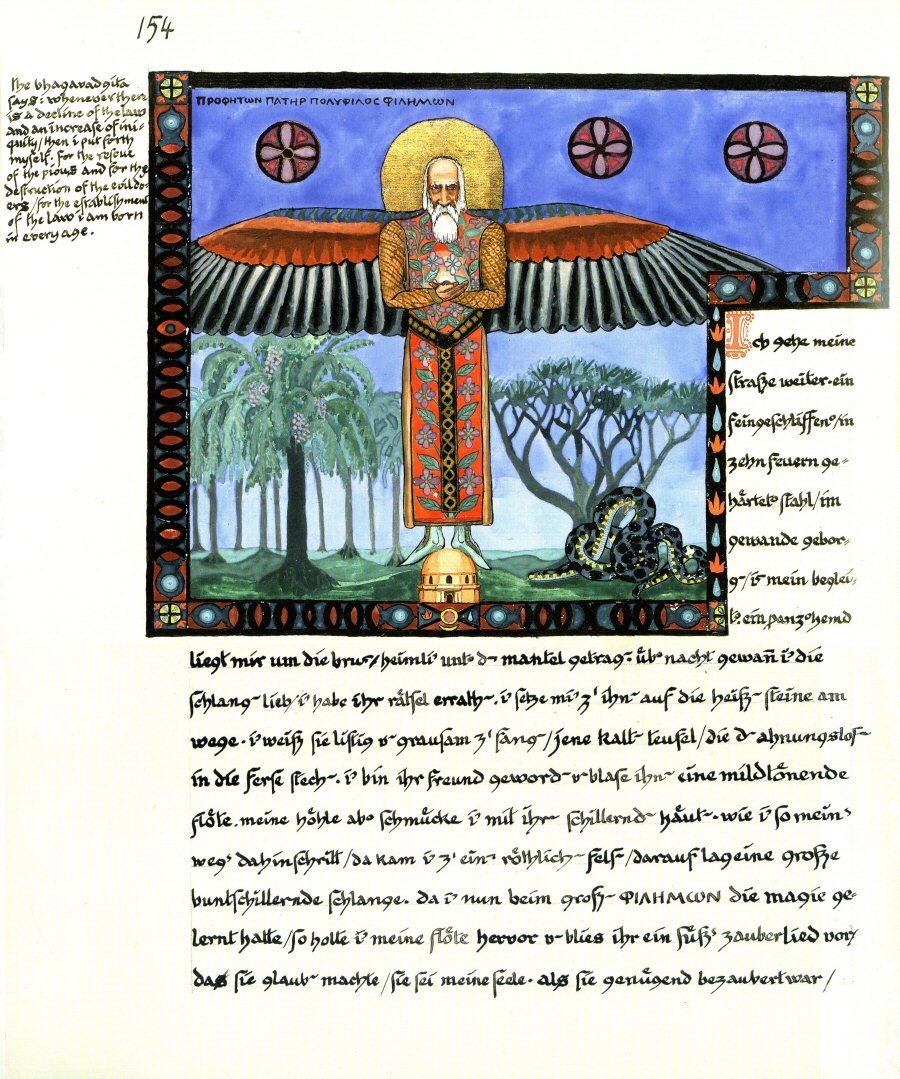 154
the bhagavadgita
says: whenever there
is a decline of the law
and an increase of ini-
quity/then i put forth
myself. for the rescue
of the pious and for the
destruction of the evildo-
ers/for the establishment
of the law i am born
in every age.
ΠΡΟΦΗΤΩΝ ΠΑΤΗΡ ΠΟΛΥΦΙΛΟΣ ΦΙΛΗΜΩΝ
Ich gehe meine
straße weiter. ein
feingeschliffen/in
zehn feuern ge-
härtet stahl/im
gewande gebor-
g/i mein beglei-
t. ein panz hemd
liegt mir um die brus/heimli unt d mantel getrag. üb nacht gewan̄ i die
schlang lieb/i habe ihr rätsel errath. i setze mi z' ihn auf die heiß steine am
wege. i weiß sie listig u grausam z' fang/jene kalt teufel/die d ahnungslos
in die ferse stech. i bin ihr freund geword u blase ihn eine mildtönende
flöte. meine höhle ab schmücke i mit ihr schillernd häut. wie i so mein
weg dahinschritt/da kam i z' ein röthlich fels/darauf lag eine große
buntschillernde schlange. da i nun beim groß ΦΙΛΗΜΩΝ die magie ge-
lernt hatte/so holte i meine flöte hervor u blies ihr ein süß zauberlied vor/
das sie glaub machte/sie sei meine seele. als sie genügend bezaubert war/